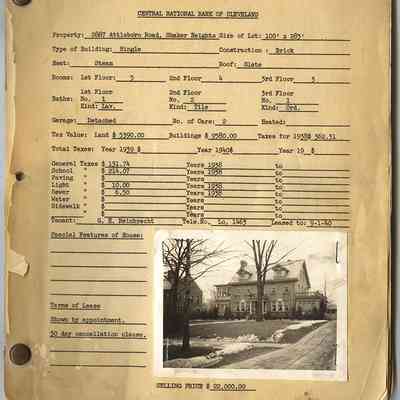 CENTRAL NATIONAL BANK OF CLEVELAND
Property: 2687 Attleboro Road, Shaker Heights Size of Lot: 100' x 285'
Type of Building: Single Construction: Brick
Heat: Steam Roof: Slate
Rooms: 1st Floor: 5 2nd Floor 4 3rd Floor 3
1st Floor 2nd Floor 3rd Floor
Baths: No. 1 No. 2 No. 1
Kind: Lav. Kind: Tile Kind: Ord.
Garage: Detached No. of Cars: 2 Heated:
Tax Value: Land $ 5390.00 Buildings $ 9580.00 Taxes for 1938$ 362.31
Total Taxes: Year 1939 $ Year 1940$ Year 19 $
General Taxes $ 131.74 Years 1938 to
School " $ 214.07 Years 1938 to
Paving " $ Years to
Light " $ 10.00 Years 1938 to
Sewer " $ 6.50 Years 1938 to
Water " $ Years to
Sidewalk " $ Years to
" $ Years to
Tenant: H. Reinbrecht Tele.No. Lo. 1463 Leased to: 9-1-40
Special Features of House:
Terms of Lease
Shown by appointment.
30 day cancellation clause.
SELLING PRICE $ 22,000.00